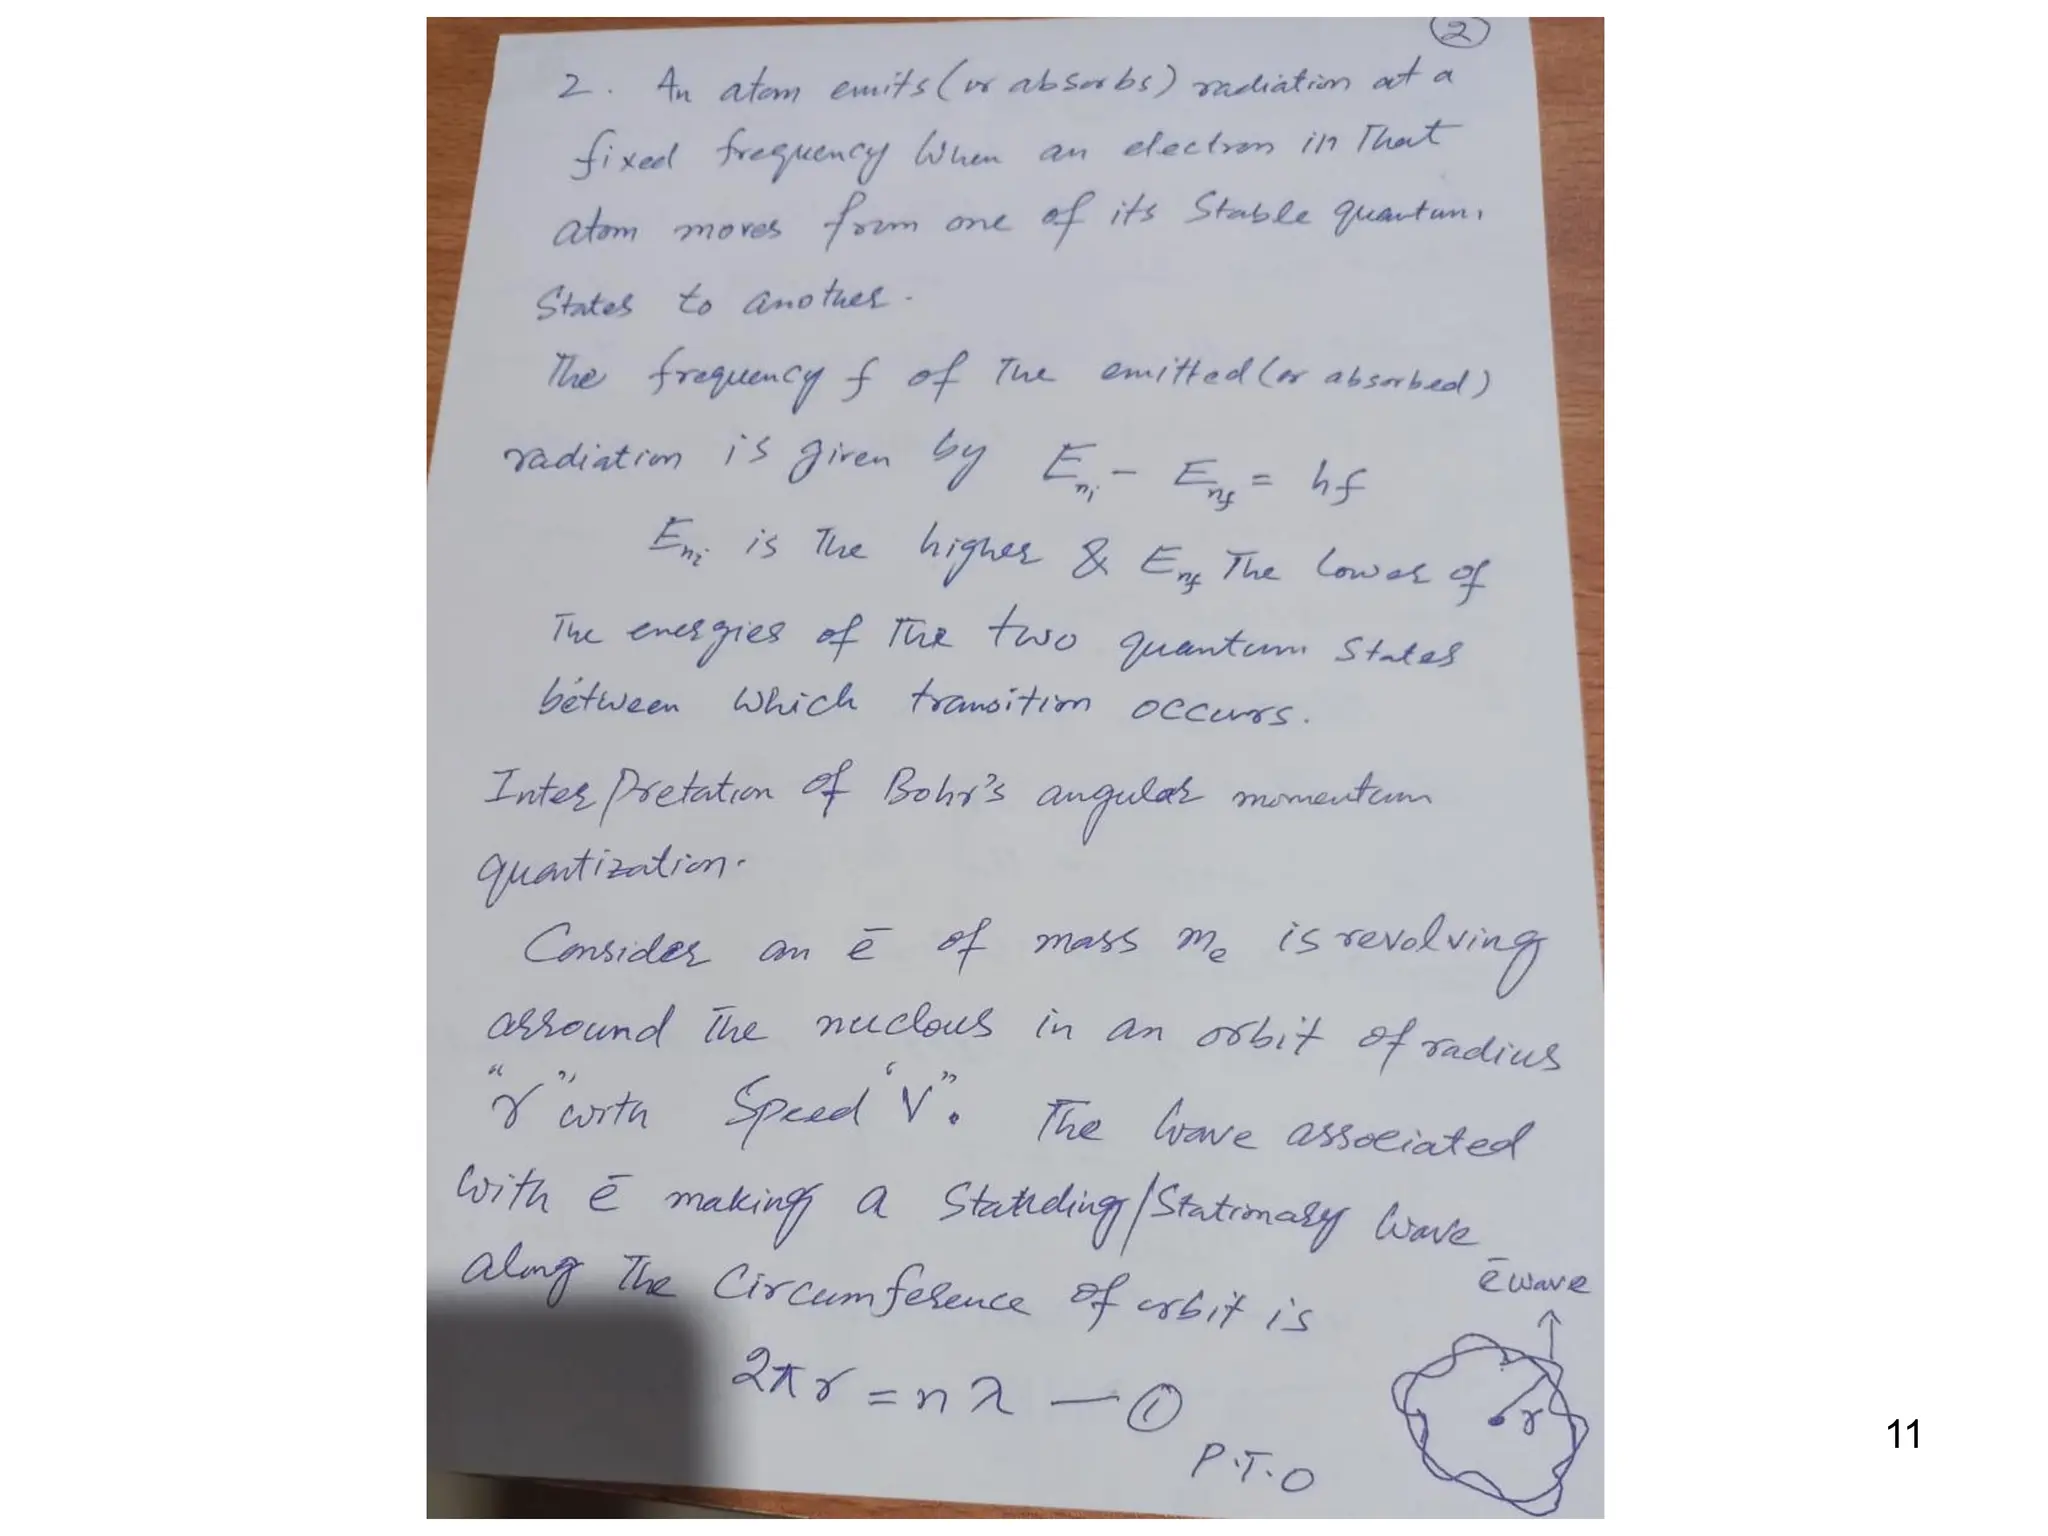 2
2. An atom emits (or absorbs) radiation at a
fixed frequency When an electron in That
atom moves from one of its Stable quantum
States to another.
The frequency f of The emitted (or absorbed)
radiation is given by Eni - Enf = hf
Eni is The higher & Enf The lower of
The energies of The two quantum States
between Which transition occurs.
Interpretation of Bohr's angular momentum
quantization.
Consider an ē of mass me is revolving
arround The nuclous in an orbit of radius
"r" with Speed "V". The Wave associated
With ē making a Standing/Stationary Wave
along The Circumference of orbit is
ē wave
2πr = nλ — ①
r
P.T.O
11